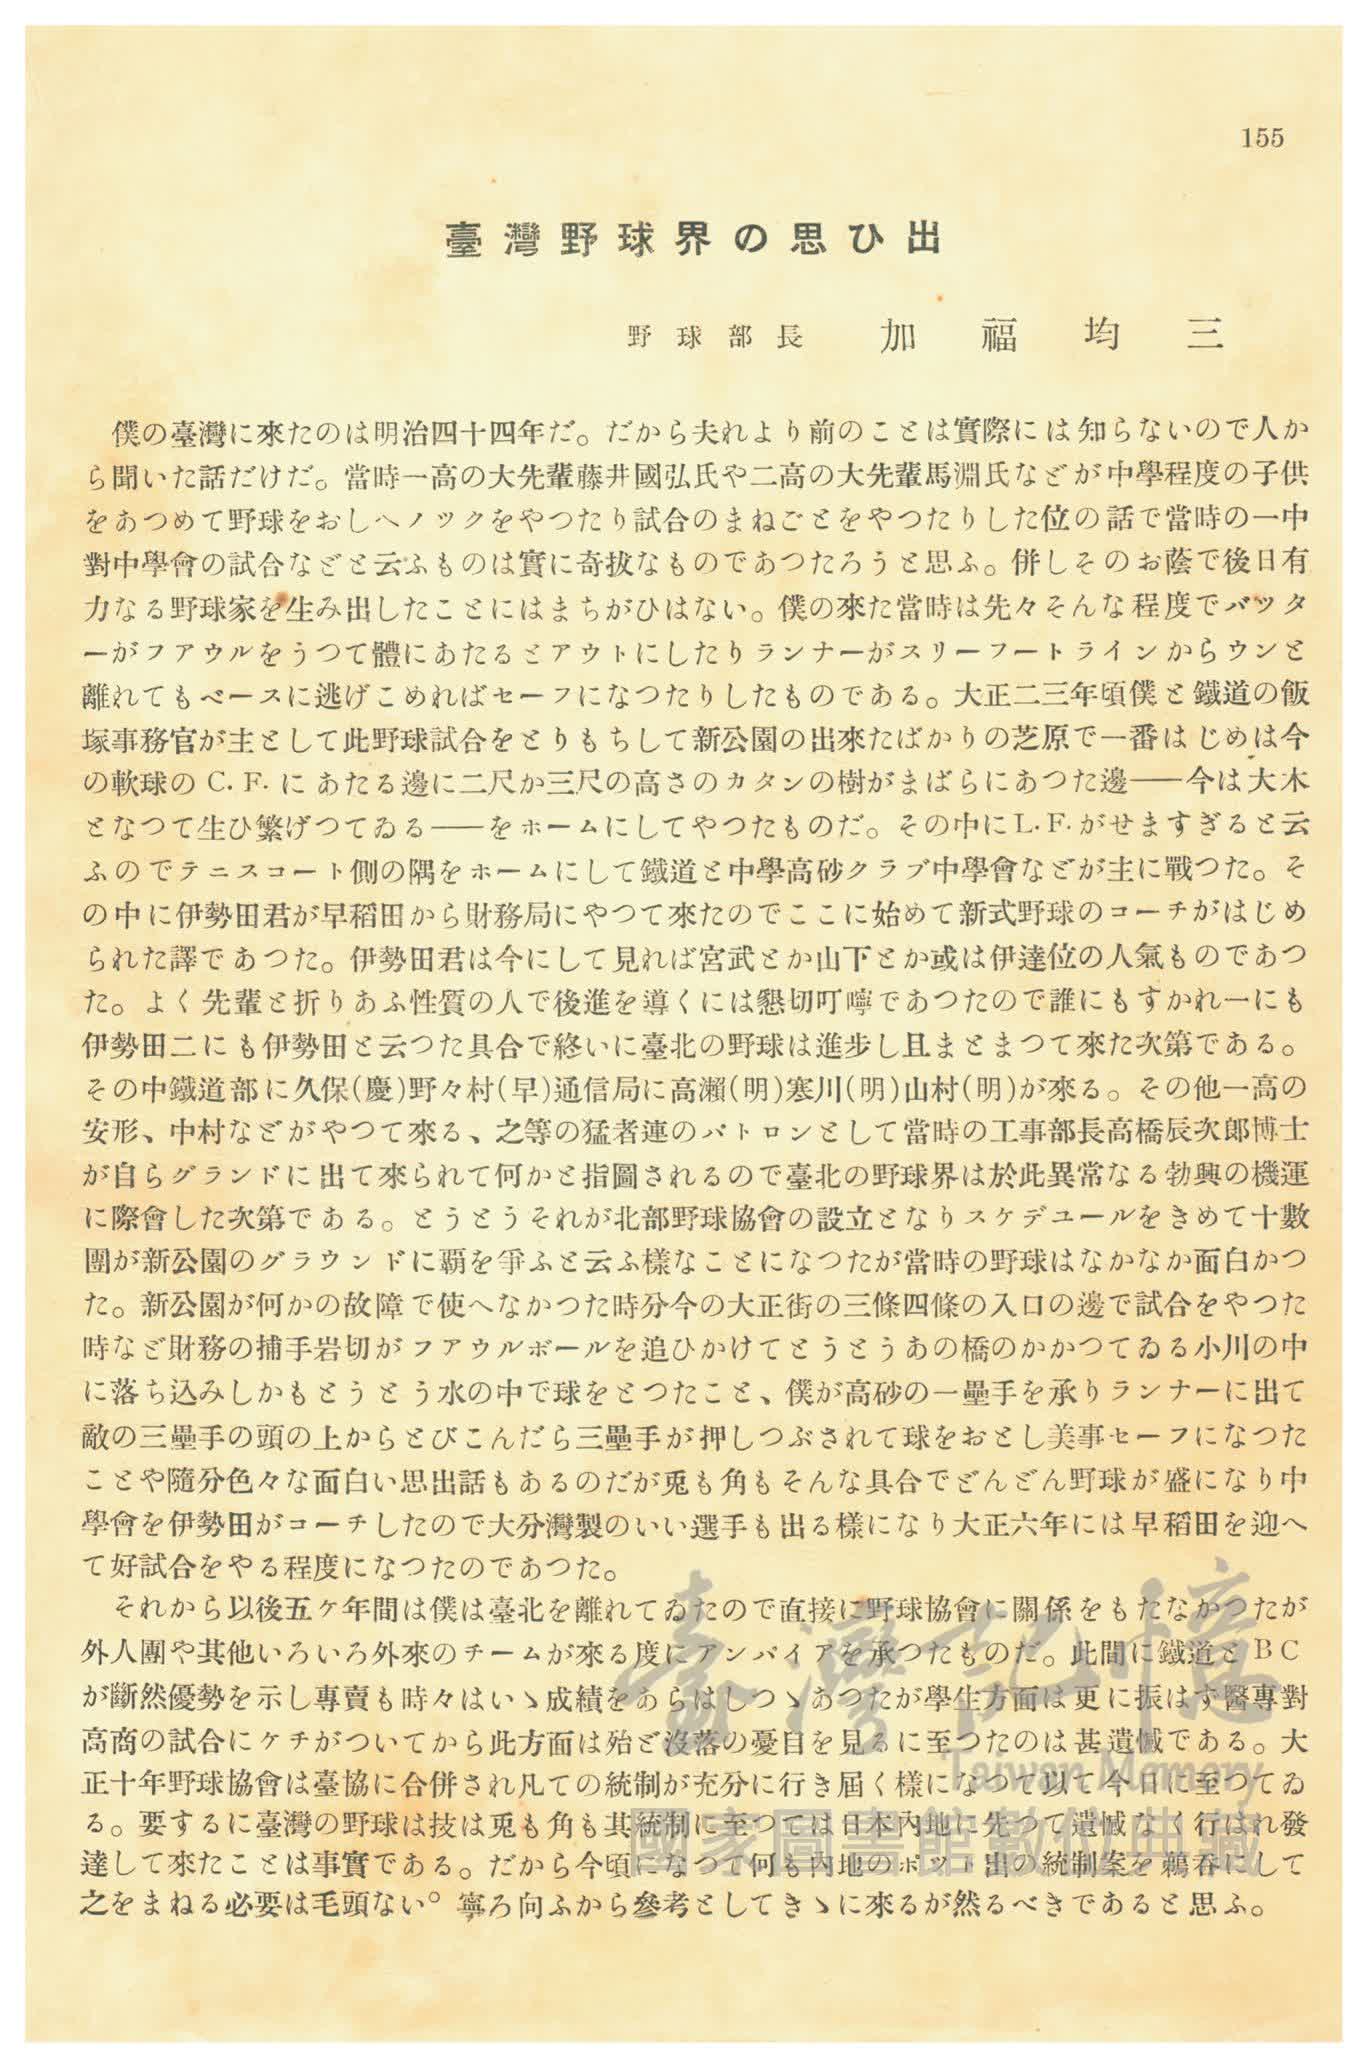 155
臺灣野球界の思ひ出
野球部長 加福均三
僕の臺灣に來たのは明治四十四年だ。だから夫れより前のことは實際には知らないので人か
ら聞いた話だけだ。當時一高の大先輩藤井國弘氏や二高の大先輩馬淵氏などが中學程度の子供
をあつめて野球をおしへノックをやつたり試合のまねごとをやつたりした位の話で當時の一中
對中學會の試合などと云ふものは實に奇拔なものであつたろうと思ふ。併しそのお蔭で後日有
力なる野球家を生み出したことにはまちがひはない。僕の來た當時は先々そんな程度でバッタ
ーがフアウルをうつて體にあたるとアウトにしたりランナーがスリーフートラインからウンと
離れてもベースに逃げこめればセーフになつたりしたものである。大正二三年頃僕と鐵道の飯
塚事務官が主として此野球試合をとりもちして新公園の出來たばかりの芝原で一番はじめは今
の軟球のC.F.にあたる邊に二尺か三尺の高さのカタンの樹がまばらにあつた邊——今は大木
となつて生ひ繁げつてゐる——をホームにしてやつたものだ。その中にL.F.がせますぎると云
ふのでテニスコート側の隅をホームにして鐵道と中學高砂クラブ中學會などが主に戰つた。そ
の中に伊勢田君が早稻田から財務局にやつて來たのでここに始めて新式野球のコーチがはじめ
られた譯であつた。伊勢田君は今にして見れば宮武とか山下とか或は伊達位の人氣ものであつ
た。よく先輩と折りあふ性質の人で後進を導くには懇切叮嚀であつたので誰にもすかれ一にも
伊勢田二にも伊勢田と云つた具合で終いに臺北の野球は進步し且まとまつて來た次第である。
その中鐵道部に久保(慶)野々村(早)通信局に高瀨(明)寒川(明)山村(明)が來る。その他一高の
安形、中村などがやつて來る、之等の猛者連のパトロンとして當時の工事部長高橋辰次郎博士
が自らグランドに出て來られて何かと指圖されるので臺北の野球界は於此異常なる勃興の機運
に際會した次第である。とうとうそれが北部野球協會の設立となりスケデユールをきめて十數
團が新公園のグラウンドに覇を爭ふと云ふ樣なことになつたが當時の野球はなかなか面白かつ
た。新公園が何かの故障で使へなかつた時分今の大正街の三條四條の入口の邊で試合をやつた
時など財務の捕手岩切がフアウルボールを追ひかけてとうとうあの橋のかかつてゐる小川の中
に落ち込みしかもとうとう水の中で球をとつたこと、僕が高砂の一壘手を承りランナーに出て
敵の三壘手の頭の上からとびこんだら三壘手が押しつぶされて球をおとし美事セーフになつた
ことや隨分色々な面白い思出話もあるのだが兎も角もそんな具合でどんどん野球が盛になり中
學會を伊勢田がコーチしたので大分灣製のいい選手も出る樣になり大正六年には早稻田を迎へ
て好試合をやる程度になつたのであつた。
それから以後五ケ年間は僕は臺北を離れてゐたので直接に野球協會に關係をもたなかつたが
外人團や其他いろいろ外來のチームが來る度にアンパイアを承つたものだ。此間に鐵道とBC
が斷然優勢を示し專賣も時々はいゝ成績をあらはしつゝあつたが學生方面は更に振はず醫專對
高商の試合にケチがついてから此方面は殆ど沒落の憂目を見るに至つたのは甚遺憾である。大
正十年野球協會は臺協に合併され凡ての統制が充分に行き屆く樣になつて以て今日に至つてゐ
る。要するに臺灣の野球は技は兎も角も其統制に至つては日本內地に先つて遺憾なく行はれ發
達して來たことは事實である。だから今頃になつて何も內地のポツト出の統制案を鵜呑にして
之をまねる必要は毛頭ない。寧ろ向ふから參考としてきゝに來るが然るべきであると思ふ。
臺灣記憶
Taiwan Memory
國家圖書館數位典藏